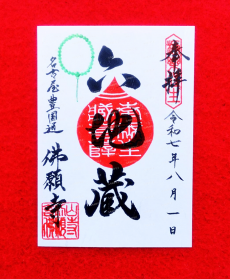 奉拝
令和七年八月一日
六地蔵
名古屋豊国通
佛願寺